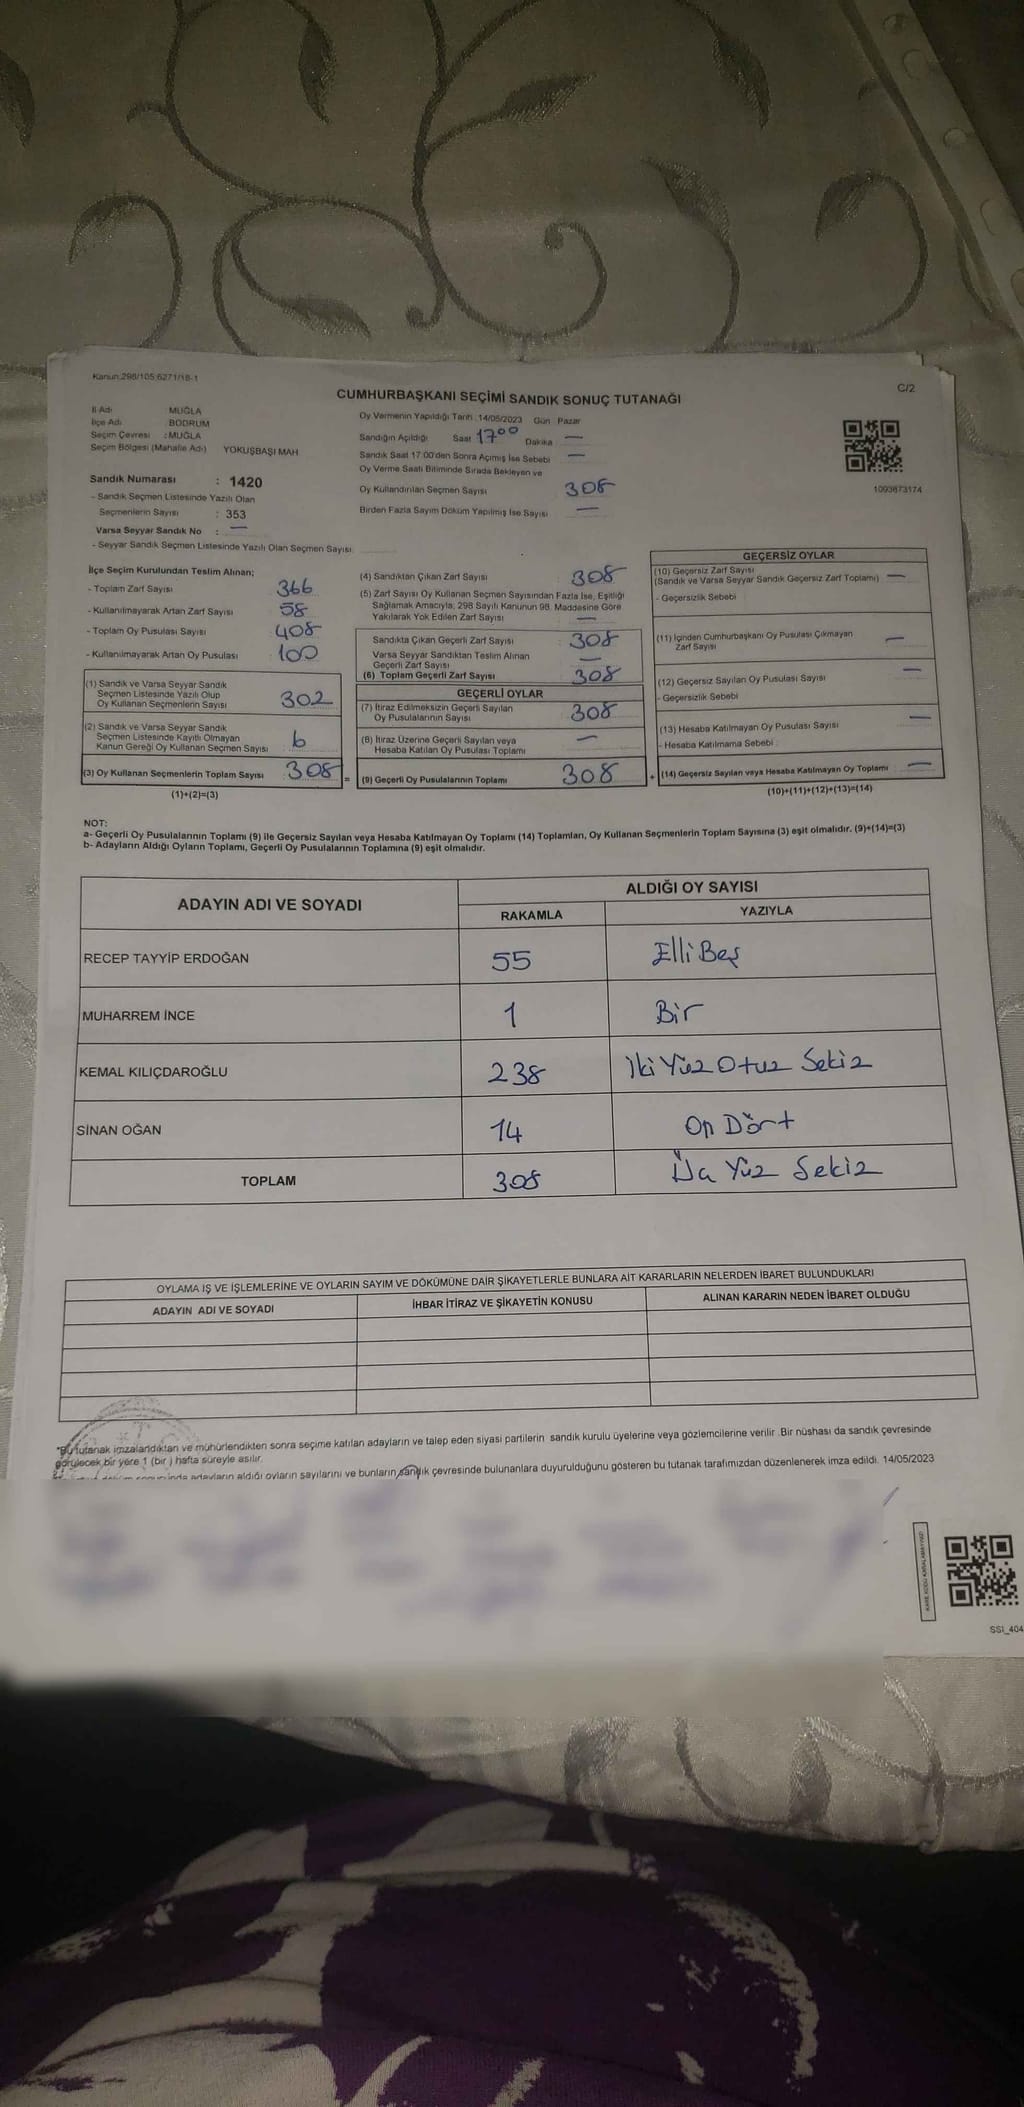 Kanun:298/105,6271/18-1
C/2
CUMHURBAŞKANI SEÇİMİ SANDIK SONUÇ TUTANAĞI
İl Adı MUĞLA
İlçe Adı BODRUM
Seçim Çevresi : MUĞLA
Seçim Bölgesi (Mahalle Adı) YOKUŞBAŞI MAH
Sandık Numarası : 1420
- Sandık Seçmen Listesinde Yazılı Olan
Seçmenlerin Sayısı : 353
Varsa Seyyar Sandık No : —
- Seyyar Sandık Seçmen Listesinde Yazılı Olan Seçmen Sayısı
Oy Vermenin Yapıldığı Tarih : 14/05/2023 Gün : Pazar
Sandığın Açıldığı Saat 17 00 Dakika —
Sandık Saat 17:00'den Sonra Açılmış İse Sebebi —
Oy Verme Saati Bitiminde Sırada Bekleyen ve
Oy Kullandırılan Seçmen Sayısı 308
Birden Fazla Sayım Döküm Yapılmış İse Sayısı —
1093673174
İlçe Seçim Kurulundan Teslim Alınan;
- Toplam Zarf Sayısı 366
- Kullanılmayarak Artan Zarf Sayısı 58
- Toplam Oy Pusulası Sayısı 408
- Kullanılmayarak Artan Oy Pusulası 100
(1) Sandık ve Varsa Seyyar Sandık
Seçmen Listesinde Yazılı Olup
Oy Kullanan Seçmenlerin Sayısı 302
(2) Sandık ve Varsa Seyyar Sandık
Seçmen Listesinde Kayıtlı Olmayan
Kanun Gereği Oy Kullanan Seçmen Sayısı 6
(3) Oy Kullanan Seçmenlerin Toplam Sayısı 308
(1)+(2)=(3)
(4) Sandıktan Çıkan Zarf Sayısı 308
(5) Zarf Sayısı Oy Kullanan Seçmen Sayısından Fazla İse, Eşitliği
Sağlamak Amacıyla, 298 Sayılı Kanunun 98. Maddesine Göre
Yakılarak Yok Edilen Zarf Sayısı —
Sandıkta Çıkan Geçerli Zarf Sayısı 308
Varsa Seyyar Sandıktan Teslim Alınan
Geçerli Zarf Sayısı —
(6) Toplam Geçerli Zarf Sayısı 308
GEÇERLİ OYLAR
(7) İtiraz Edilmeksizin Geçerli Sayılan
Oy Pusulalarının Sayısı 308
(8) İtiraz Üzerine Geçerli Sayılan veya
Hesaba Katılan Oy Pusulası Toplamı —
= (9) Geçerli Oy Pusulalarının Toplamı 308
GEÇERSİZ OYLAR
(10) Geçersiz Zarf Sayısı
(Sandık ve Varsa Seyyar Sandık Geçersiz Zarf Toplamı) —
- Geçersizlik Sebebi
(11) İçinden Cumhurbaşkanı Oy Pusulası Çıkmayan
Zarf Sayısı —
(12) Geçersiz Sayılan Oy Pusulası Sayısı —
- Geçersizlik Sebebi
(13) Hesaba Katılmayan Oy Pusulası Sayısı —
- Hesaba Katılmama Sebebi :
+ (14) Geçersiz Sayılan veya Hesaba Katılmayan Oy Toplamı —
(10)+(11)+(12)+(13)=(14)
NOT:
a- Geçerli Oy Pusulalarının Toplamı (9) ile Geçersiz Sayılan veya Hesaba Katılmayan Oy Toplamı (14) Toplamları, Oy Kullanan Seçmenlerin Toplam Sayısına (3) eşit olmalıdır. (9)+(14)=(3)
b- Adayların Aldığı Oyların Toplamı, Geçerli Oy Pusulalarının Toplamına (9) eşit olmalıdır.
ADAYIN ADI VE SOYADI
ALDIĞI OY SAYISI
RAKAMLA YAZIYLA
RECEP TAYYİP ERDOĞAN 55 Elli Beş
MUHARREM İNCE 1 Bir
KEMAL KILIÇDAROĞLU 238 İki Yüz Otuz Sekiz
SİNAN OĞAN 14 On Dört
TOPLAM 308 Üç Yüz Sekiz
OYLAMA İŞ VE İŞLEMLERİNE VE OYLARIN SAYIM VE DÖKÜMÜNE DAİR ŞİKAYETLERLE BUNLARA AİT KARARLARIN NELERDEN İBARET BULUNDUKLARI
ADAYIN ADI VE SOYADI İHBAR İTİRAZ VE ŞİKAYETİN KONUSU ALINAN KARARIN NEDEN İBARET OLDUĞU
*Bu tutanak imzalandıktan ve mühürlendikten sonra seçime katılan adayların ve talep eden siyasi partilerin sandık kurulu üyelerine veya gözlemcilerine verilir .Bir nüshası da sandık çevresinde
görülecek bir yere 1 (bir ) hafta süreyle asılır.
adayların aldığı oyların sayılarını ve bunların sandık çevresinde bulunanlara duyurulduğunu gösteren bu tutanak tarafımızdan düzenlenerek imza edildi. 14/05/2023
KARE KODU KARALAMAYINIZ!
SSI_404